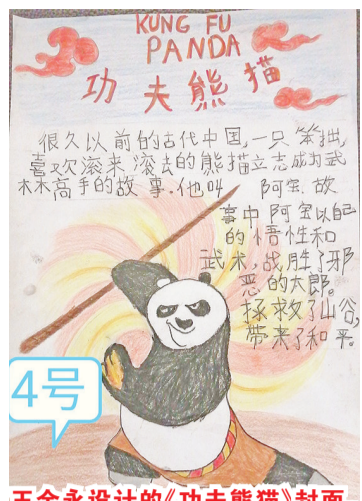 KUNG FU
PANDA
功夫熊描
很久以前的古代中国,一只笨拙,
喜欢滚来滚去的熊描立志成为武
林高手的故事.他叫 阿宝.故
事中阿宝以自己
的悟性和
武术,战胜了邪
恶的太郎。
拯救了山谷,
带来了和平.
4号
王金永设计的《功夫熊猫》封面